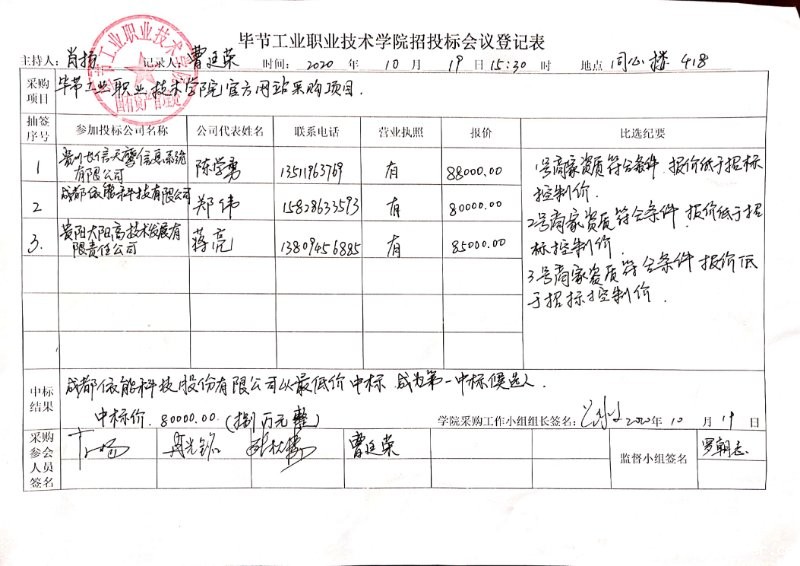 毕节工业职业技术学院招投标会议登记表
主持人: 肖扬 记录人: 曹廷荣 时间: 2020 年 10 月 19 日 15:30 时 地点 同心楼 418
采购项目 毕节工业职业技术学院官方网站采购项目.
抽签序号 参加投标公司名称 公司代表姓名 联系电话 营业执照 报价 比选纪要
1 有限公司 陈学勇 13511963769 有 88000.00
2 成都依能科技股份有限公司 郑伟 15828633593 有 80000.00
3. 贵阳太阳高技术发展有限责任公司 蒋亮 13809456885 有 85000.00
1号商家资质符合条件.报价低于招标
控制价.
2号商家资质符合条件.报价低于招
标控制价.
3.号商家资质符合条件报价低
于招标控制价.
中标结果 成都依能科技股份有限公司以最低价中标.成为第一中标候选人.
中标价.80000.00.(捌万元整)
学院采购工作小组组长签名: 2020年 10 月 19 日
采购参会人员签名 曹廷荣 监督小组签名 罗朝志
毕节工业职业技术学院
国有资产管理处